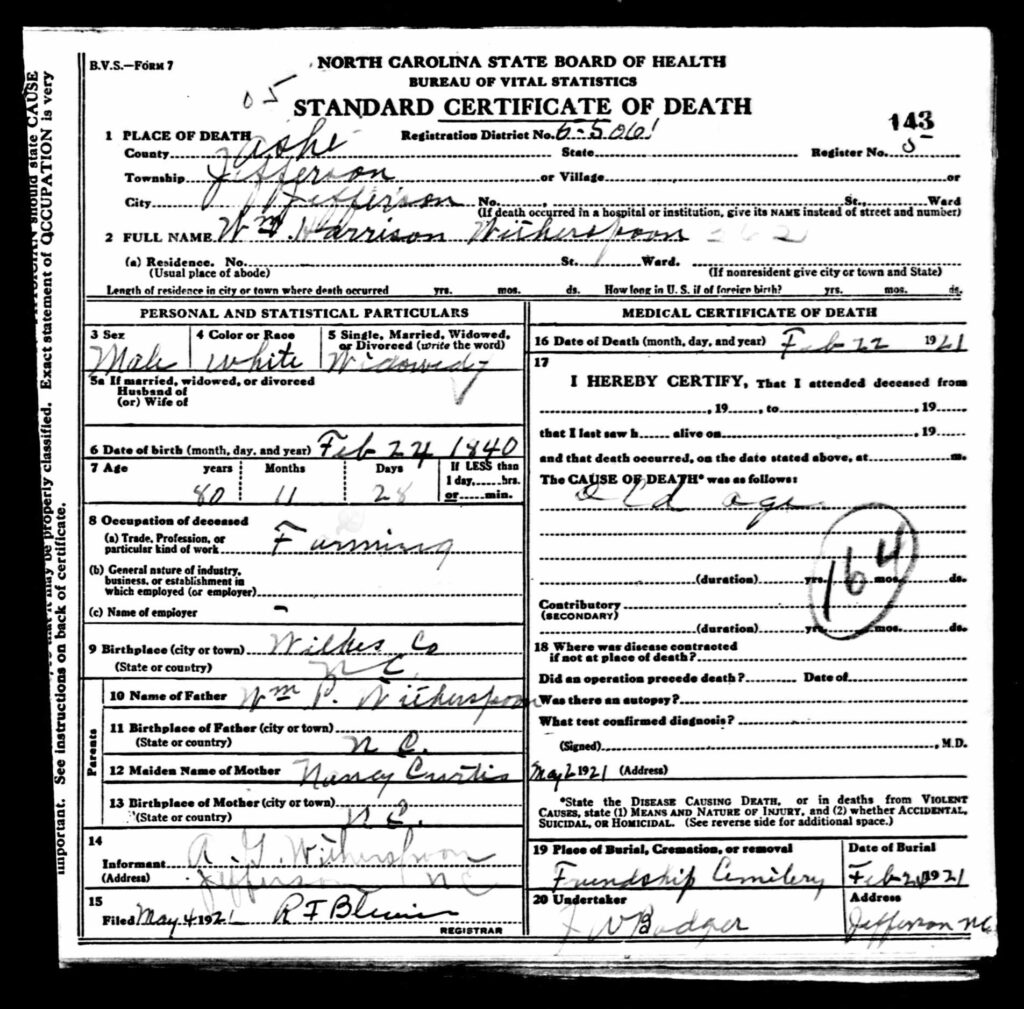 PHYSICIAN should state CAUSE
Exact statement of OCCUPATION is very
may be properly classified.
important. See instructions on back of certificate.
B.V.S.—FORM 7
NORTH CAROLINA STATE BOARD OF HEALTH
BUREAU OF VITAL STATISTICS
05
STANDARD CERTIFICATE OF DEATH
143
1 PLACE OF DEATH Registration District No. 5-5061
County Ashe State Register No. 5
Township Jefferson or Village or
City Jefferson No. , St., Ward
(If death occurred in a hospital or institution, give its NAME instead of street and number)
2 FULL NAME Wm. Harrison Witherspoon 362
(a) Residence. No. St. Ward.
(Usual place of abode) (If nonresident give city or town and State)
Length of residence in city or town where death occurred yrs. mos. ds. How long in U. S. if of foreign birth? yrs. mos. ds.
PERSONAL AND STATISTICAL PARTICULARS
3 Sex 4 Color or Race 5 Single, Married, Widowed, or Divorced (write the word)
Male white Widowed
5a If married, widowed, or divorced
Husband of
(or) Wife of
6 Date of birth (month, day, and year) Feb 24 1840
7 Age years Months Days If LESS than
1 day,......hrs.
80 11 28 or......min.
8 Occupation of deceased
(a) Trade, Profession, or
particular kind of work Farming
(b) General nature of industry,
business, or establishment in
which employed (or employer)
(c) Name of employer -
9 Birthplace (city or town) Wilkes Co
(State or country) N C
Parents
10 Name of Father Wm P. Witherspoon
11 Birthplace of Father (city or town)
(State or country) N C.
12 Maiden Name of Mother Nancy Curtis
13 Birthplace of Mother (city or town)
(State or country) N C.
14
Informant A. G. Witherspoon
(Address) Jefferson NC
15
Filed May 4 1921 R F Blevins
REGISTRAR
MEDICAL CERTIFICATE OF DEATH
16 Date of Death (month, day, and year) Feb 22 1921
17
I HEREBY CERTIFY, That I attended deceased from
, 19 , to , 19
that I last saw h alive on , 19
and that death occurred, on the date stated above, at m.
The CAUSE OF DEATH* was as follows:
Old age
164
(duration) yrs. mos. ds.
Contributory
(SECONDARY)
(duration) yrs. mos. ds.
18 Where was disease contracted
if not at place of death?
Did an operation precede death? Date of
Was there an autopsy?
What test confirmed diagnosis?
(Signed) , M.D.
May 2 1921 (Address)
*State the DISEASE CAUSING DEATH, or in deaths from VIOLENT
CAUSES, state (1) MEANS AND NATURE OF INJURY, and (2) whether ACCIDENTAL,
SUICIDAL, OR HOMICIDAL. (See reverse side for additional space.)
19 Place of Burial, Cremation, or removal Date of Burial
Friendship Cemitery Feb 1921
20 Undertaker Address
Badger Jefferson NC